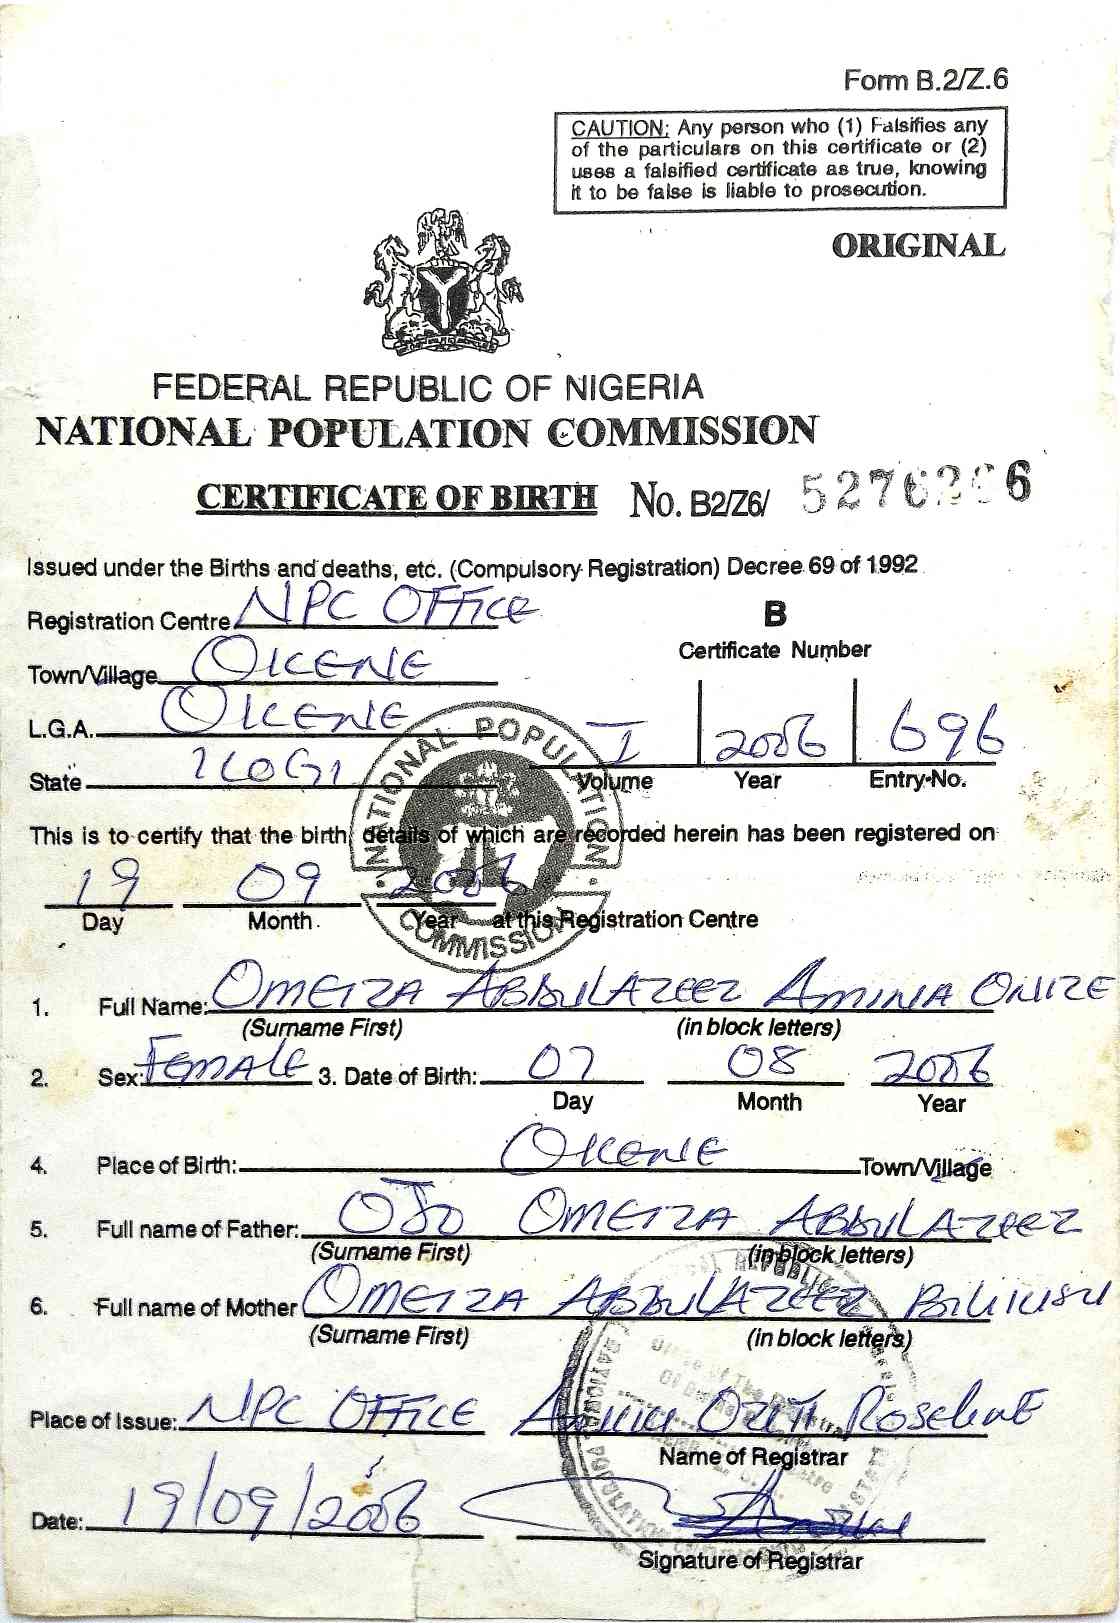 Form B.2/Z.6
CAUTION: Any person who (1) Falsifies any
of the particulars on this certificate or (2)
uses a falsified certificate as true, knowing
it to be false is liable to prosecution.
ORIGINAL
FEDERAL REPUBLIC OF NIGERIA
NATIONAL POPULATION COMMISSION
CERTIFICATE OF BIRTH No. B2/Z6/
Issued under the Births and deaths, etc. (Compulsory Registration) Decree 69 of 1992
Registration Centre NPC OFFICE
B
Certificate Number
Town/Village OKENE
L.G.A. OKENE
State KOGI
I 2006 696
Volume Year Entry No.
NATIONAL POPULATION COMMISSION
This is to certify that the birth, details of which are recorded herein has been registered on
19 09 2006
Day Month Year at this Registration Centre
1. Full Name: OMEIZA ABDULAZEEZ AMINA ONIZE
(Surname First) (in block letters)
2. Sex: FEMALE 3. Date of Birth: 07 08 2006
Day Month Year
4. Place of Birth: OKENE Town/Village
5. Full name of Father: OJO OMEIZA ABDULAZEEZ
(Surname First) (in block letters)
6. Full name of Mother OMEIZA ABDULAZEEZ BILIKISU
(Surname First) (in block letters)
Place of Issue: NPC OFFICE ROSELINE
Name of Registrar
Date: 19/09/2006
Signature of Registrar